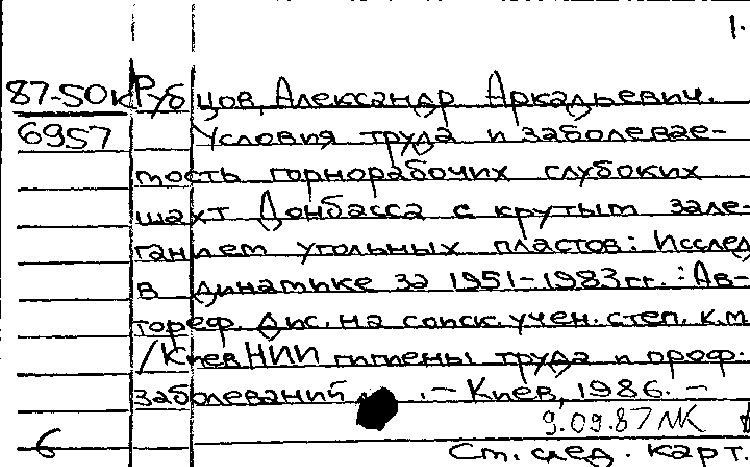 1.
87-50к Рубцов, Александр Аркадьевич.
6957 Условия труда и заболевае-
мость горнорабочих глубоких
шахт Донбасса с крутым зале-
ганием угольных пластов: Исслед
в динамике за 1951-1983гг.: Ав-
тореф дис. на соиск. учен. степ. к.м.
/Киев НИИ гигиены труда и проф.
заболеваний. - Киев, 1986. -
9.09.87
6 См. след. карт.